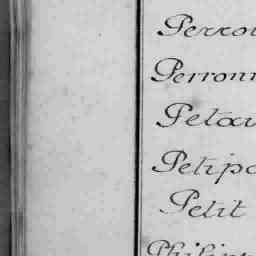 Perro
Perronn
Petau
Petipa
Petit
Philipp